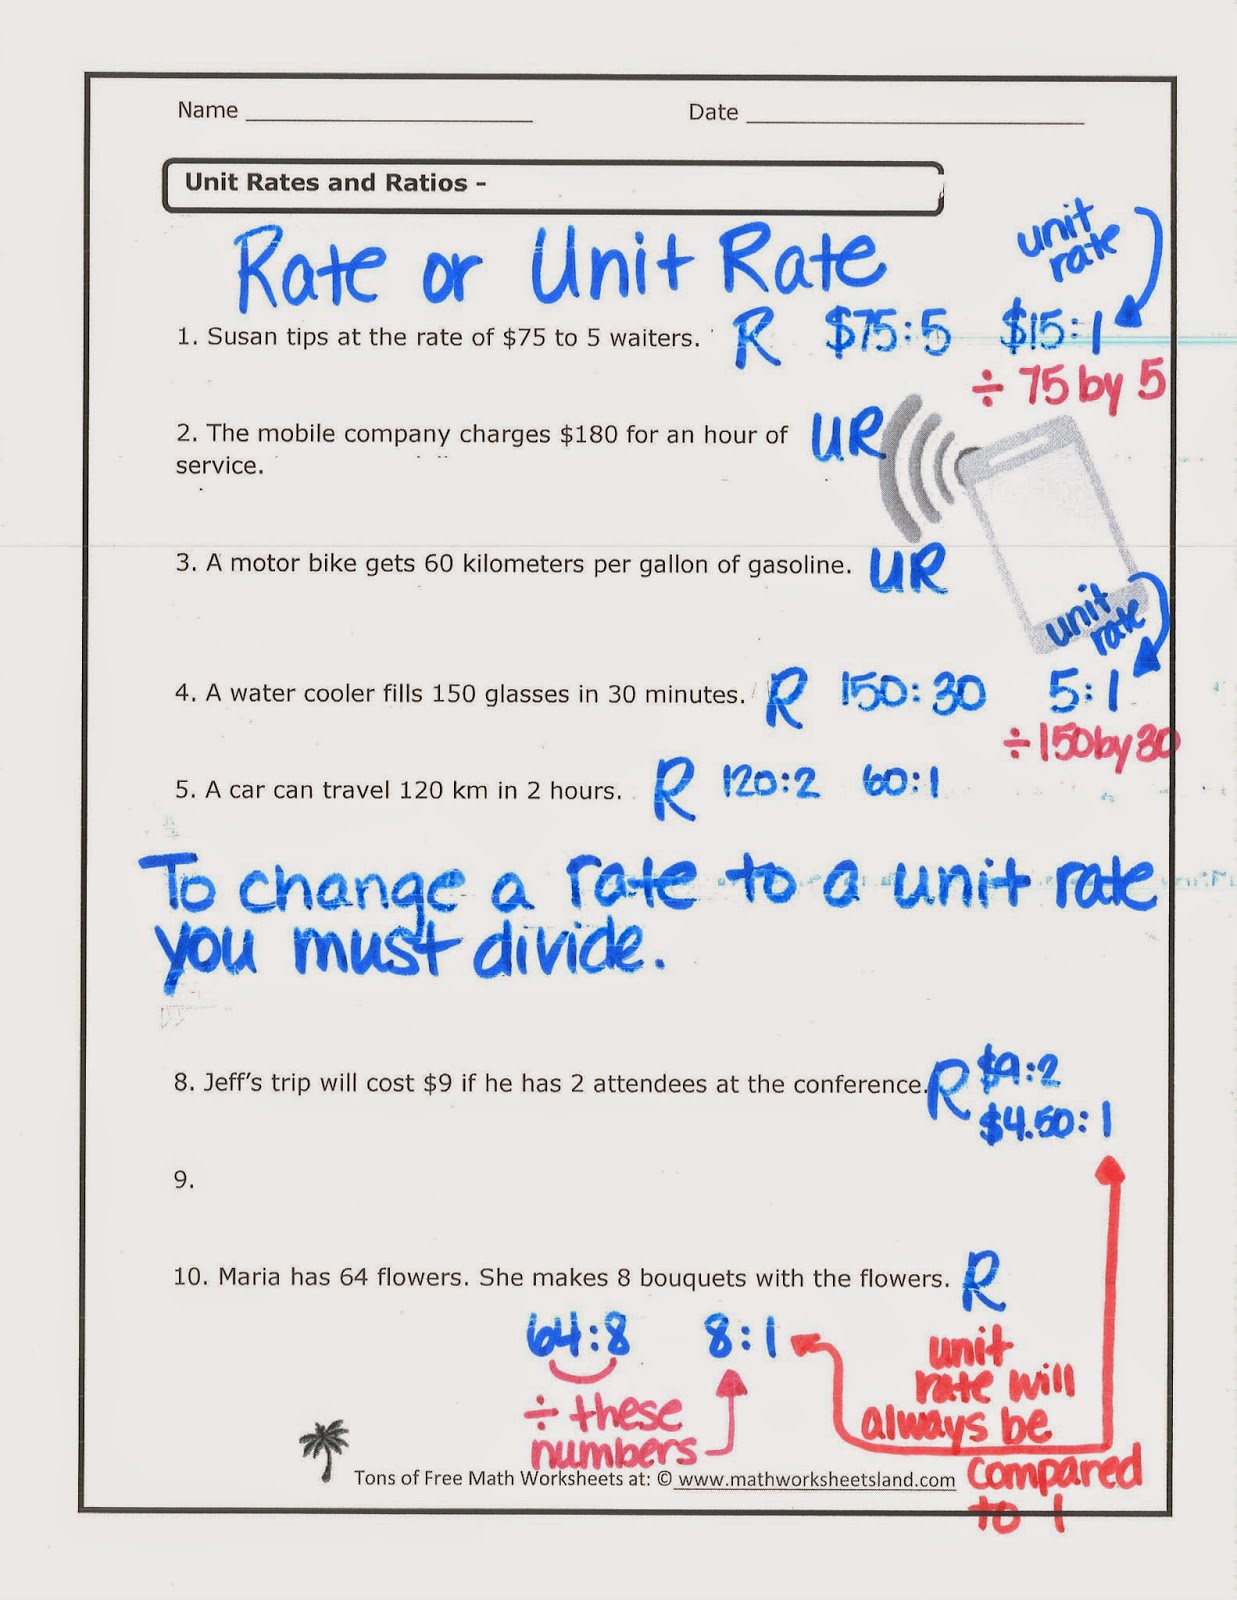 Name
Date
Unit Rates and Ratios -
Rate or Unit Rate
unit
rate
1. Susan tips at the rate of $75 to 5 waiters. R $75:5 $15:1
÷ 75 by 5
2. The mobile company charges $180 for an hour of UR
service.
3. A motor bike gets 60 kilometers per gallon of gasoline. UR
unit
rate
4. A water cooler fills 150 glasses in 30 minutes. R 150:30 5:1
÷150 by 30
5. A car can travel 120 km in 2 hours. R 120:2 60:1
To change a rate to a unit rate
you must divide.
8. Jeff's trip will cost $9 if he has 2 attendees at the conference. R $9:2
$4.50:1
9.
10. Maria has 64 flowers. She makes 8 bouquets with the flowers. R
64:8 8:1
÷ these
numbers
unit
rate will
always be
compared
to 1
Tons of Free Math Worksheets at: © www.mathworksheetsland.com